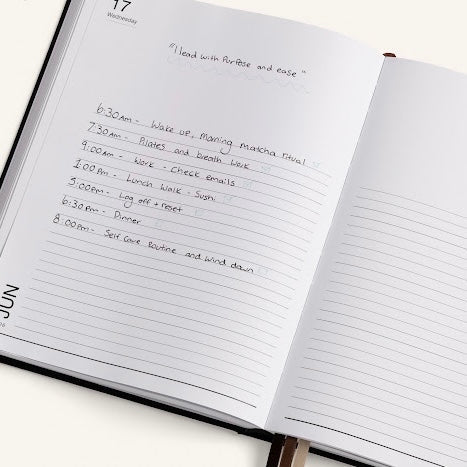 17
Wednesday
"I lead with Purpose and ease"
6:30Am - Wake up, morning matcha ritual
7:30Am - Pilates and breath work
9:00Am - Work - Check emails
1:00Pm - Lunch Walk - Sushi
5:00pm - Log off + reset
6:30pm - Dinner
8:00pm - Self Care Routine and wind down
JUN